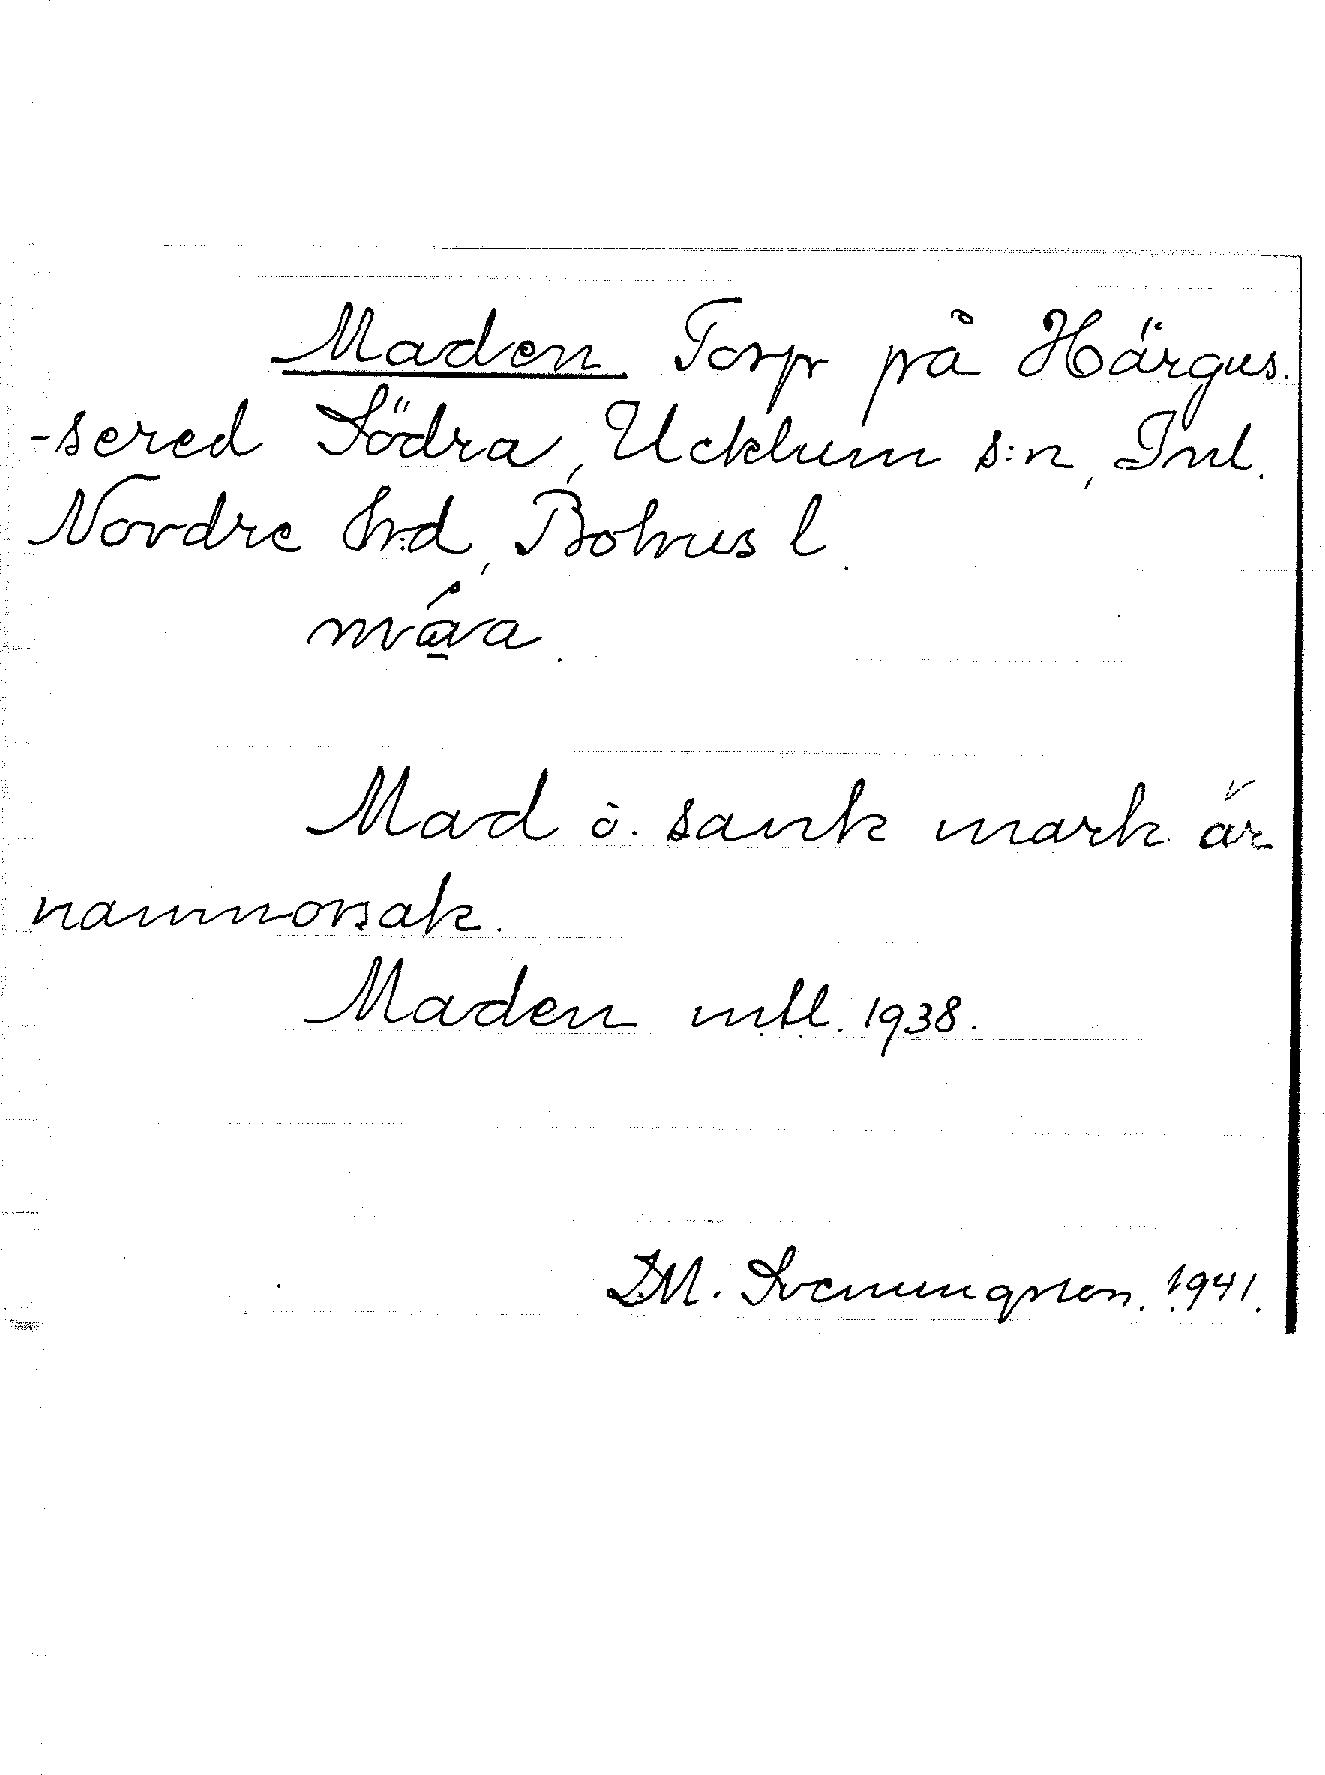 Maden Torp på Härgus-
-sered Södra, Ucklum s:n, Inl.
Nordre hrd, Bohus l.
Mad o. sank mark är
namnorsak.
Maden mtl. 1938.
D.M. Svenungsson. 1941.